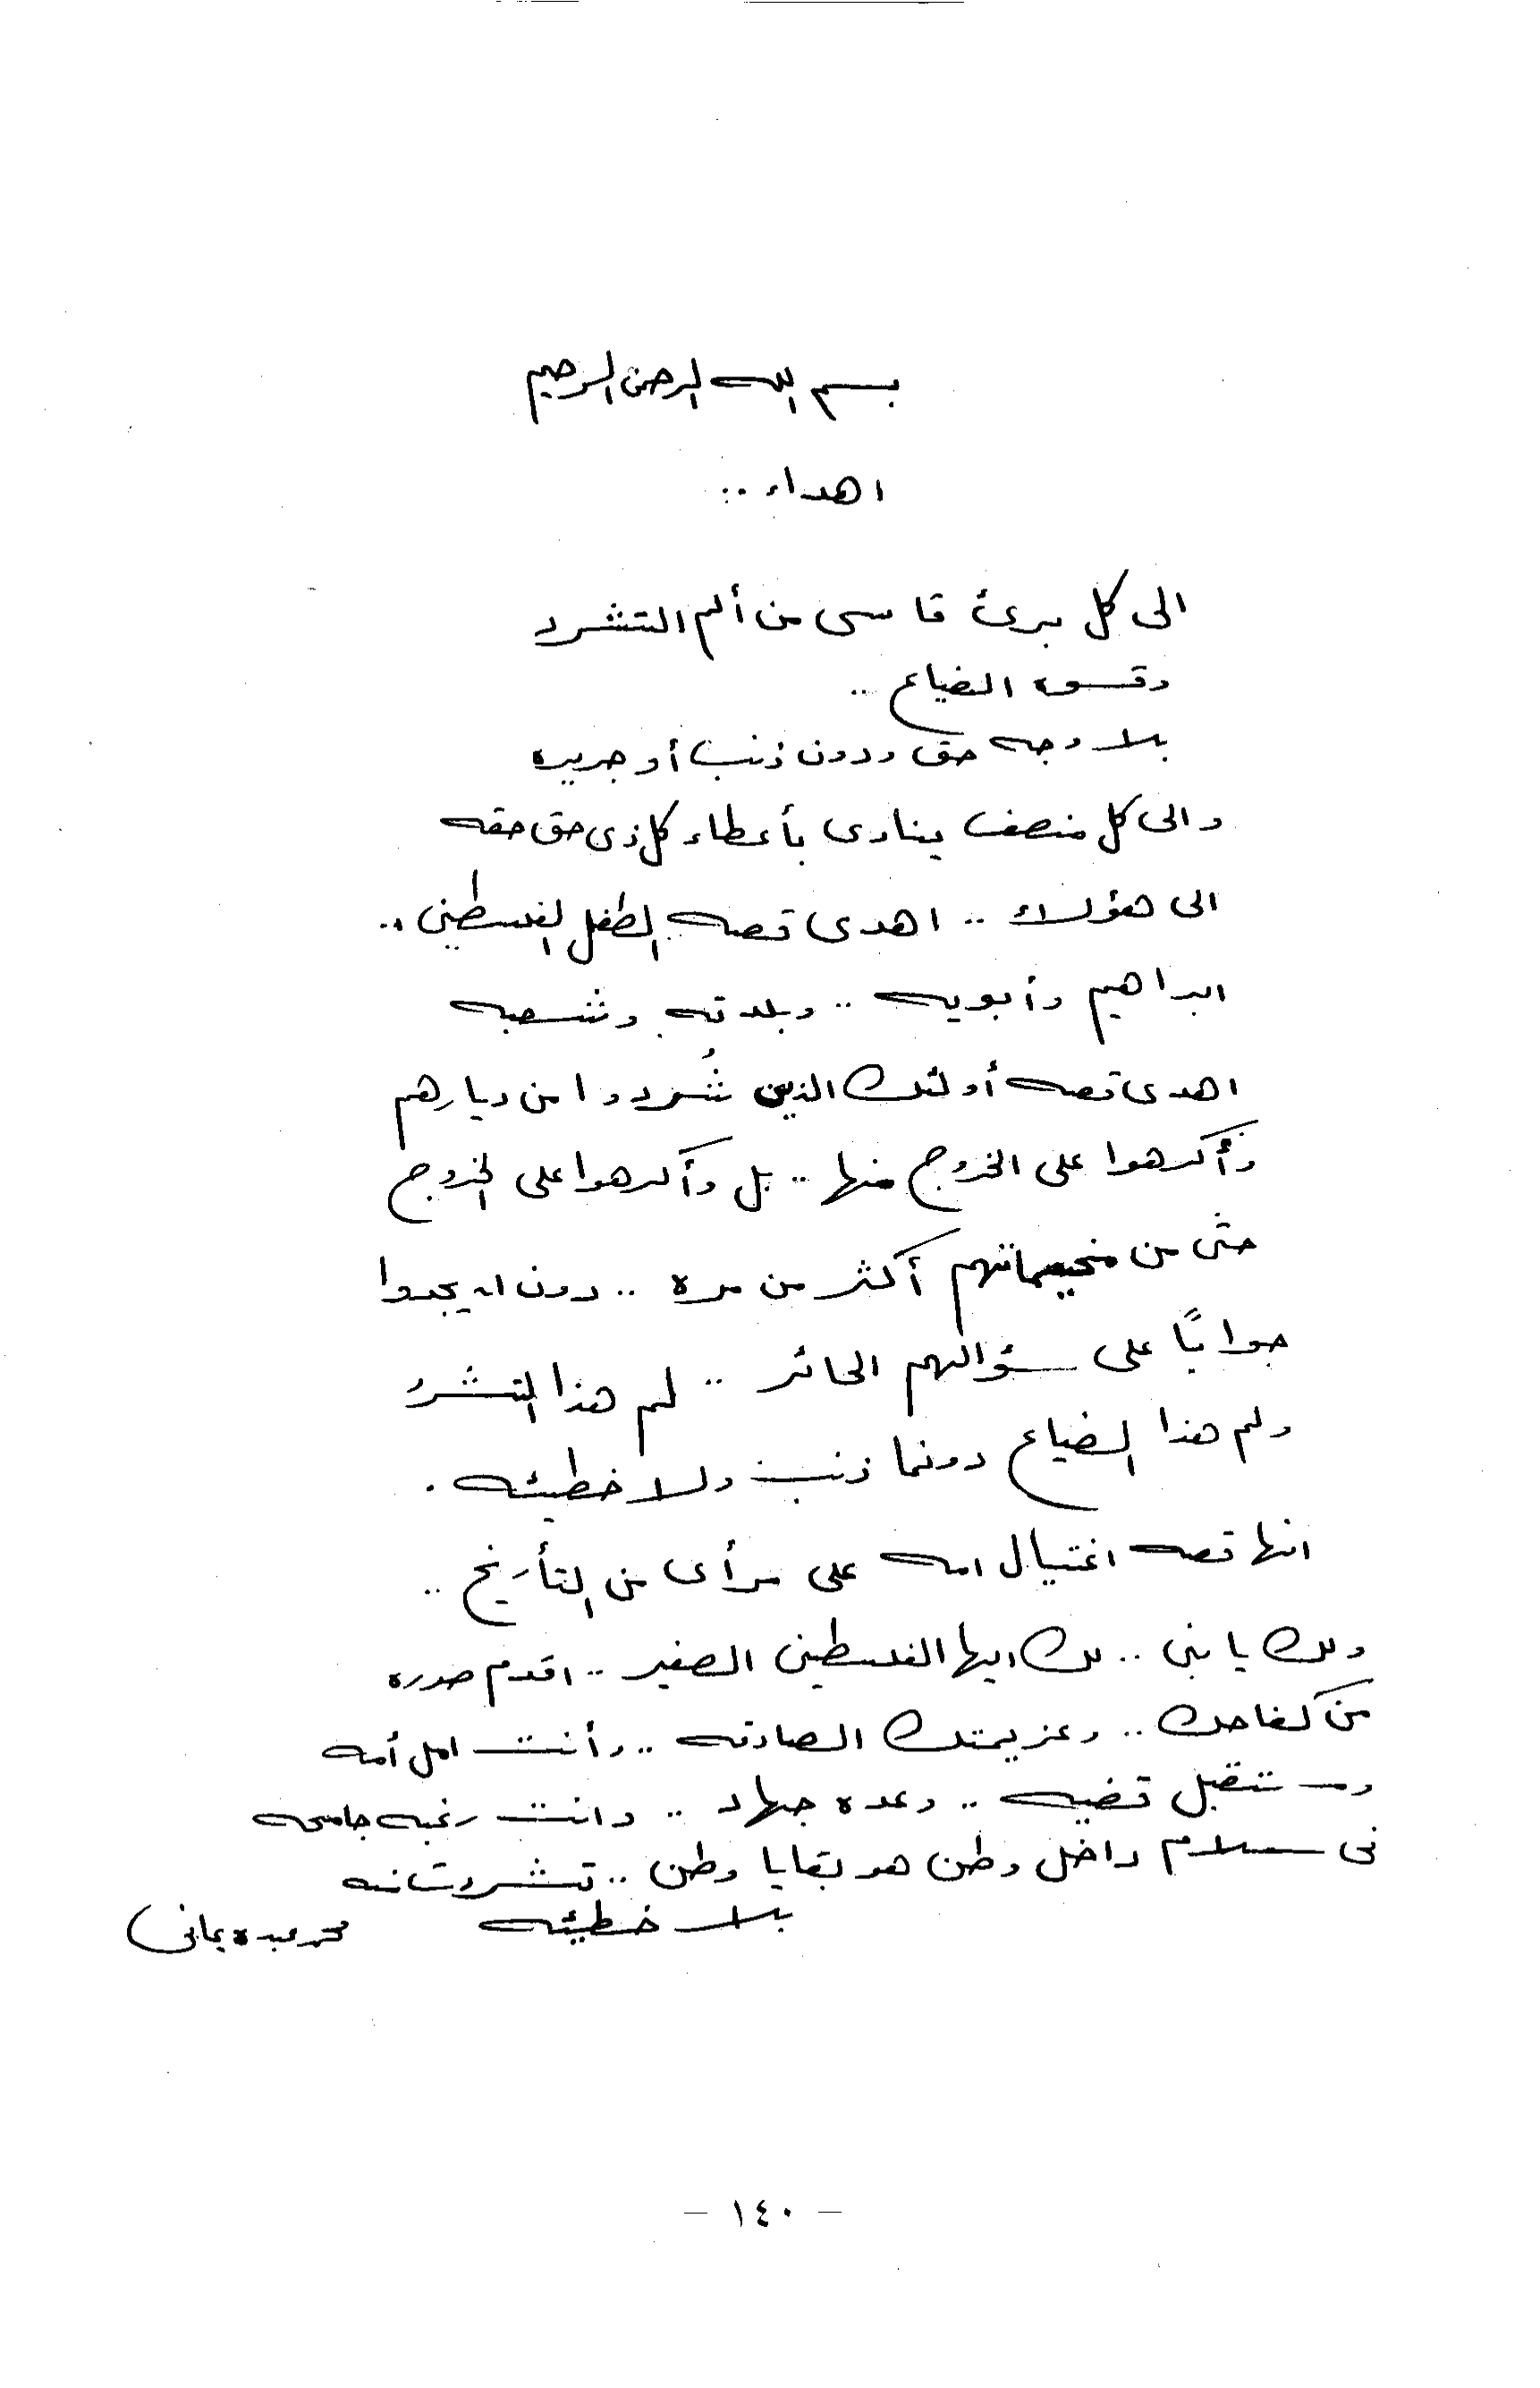 بسم الله الرحمن الرحيم
اهداء ..
الى كل برئ قاسى من ألم التشرد
وقسوه الضياع ..
بلا وجه حق ودون ذنب أو جريره
والى كل منصف ينادى بأعطاء كل ذى حق حقه
الى هؤلاء .. اهدى قصه الطفل الفلسطينى ..
ابراهيم وأبويه .. وبلدته وشعبه
اهدى قصه أولئك الذين شُردوا من ديارهم
وأُكرهوا على الخروج منها .. بل وأكرهوا على الخروج
حتى من مخيماتهم أكثر من مره .. دون ان يجدوا
جوابًا على سؤالهم الحائر .. لم هذا التشرد
ولم هذا الضياع دونما ذنب ولا خطيئه .
انها قصه اغتيال امه على مرأى من التأريخ ..
ولك يا بنى .. لك ايها الفلسطينى الصغير .. اقدم صوره
من كفاحك .. وعزيمتك الصادقه .. وأنت امل أمه
ومستقبل قضيه .. وعده جهاد .. وانت رغبه جامحه
فى سلام داخل وطن هو بقايا وطن .. تشردت منه
بلا خطيئه
محمد عبده يمانى
- ١٤٠ -